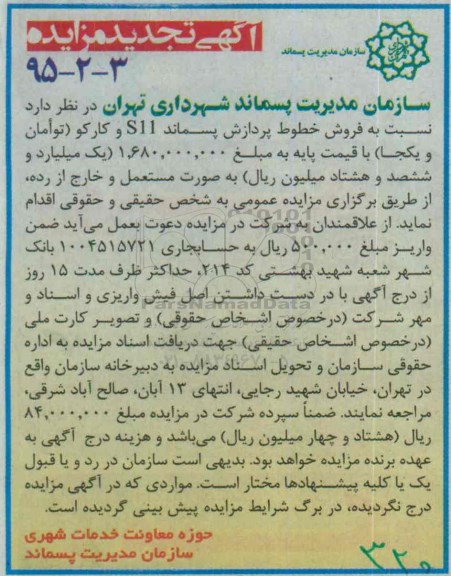 آگهی تجدید مزایده
سازمان مدیریت پسماند
۹۵-۲-۳
سازمان مدیریت پسماند شهرداری تهران در نظر دارد
نسبت به فروش خطوط پردازش پسماند S11 و کارکو (توأمان
و یکجا) با قیمت پایه به مبلغ ۱,۶۸۰,۰۰۰,۰۰۰ (یک میلیارد و
ششصد و هشتاد میلیون ریال) به صورت مستعمل و خارج از رده،
از طریق برگزاری مزایده عمومی به شخص حقیقی و حقوقی اقدام
نماید. از علاقمندان به شرکت در مزایده دعوت بعمل می‌آید ضمن
واریز مبلغ ۵۰۰,۰۰۰ ریال به حسابجاری ۱۰۰۴۵۱۵۷۲۱ بانک
شهر شعبه شهید بهشتی کد ۲۱۴، حداکثر ظرف مدت ۱۵ روز
از درج آگهی با در دست داشتن اصل فیش واریزی و اسناد و
مهر شرکت (درخصوص اشخاص حقوقی) و تصویر کارت ملی
(درخصوص اشخاص حقیقی) جهت دریافت اسناد مزایده به اداره
حقوقی سازمان و تحویل اسناد مزایده به دبیرخانه سازمان واقع
در تهران، خیابان شهید رجایی، انتهای ۱۳ آبان، صالح آباد شرقی،
مراجعه نمایند. ضمناً سپرده شرکت در مزایده مبلغ ۸۴,۰۰۰,۰۰۰
ریال (هشتاد و چهار میلیون ریال) می‌باشد و هزینه درج آگهی به
عهده برنده مزایده خواهد بود. بدیهی است سازمان در رد و یا قبول
یک یا کلیه پیشنهادها مختار است. مواردی که در آگهی مزایده
درج نگردیده، در برگ شرایط مزایده پیش بینی گردیده است.
حوزه معاونت خدمات شهری
سازمان مدیریت پسماند
۳۲۰
ParsNamadData